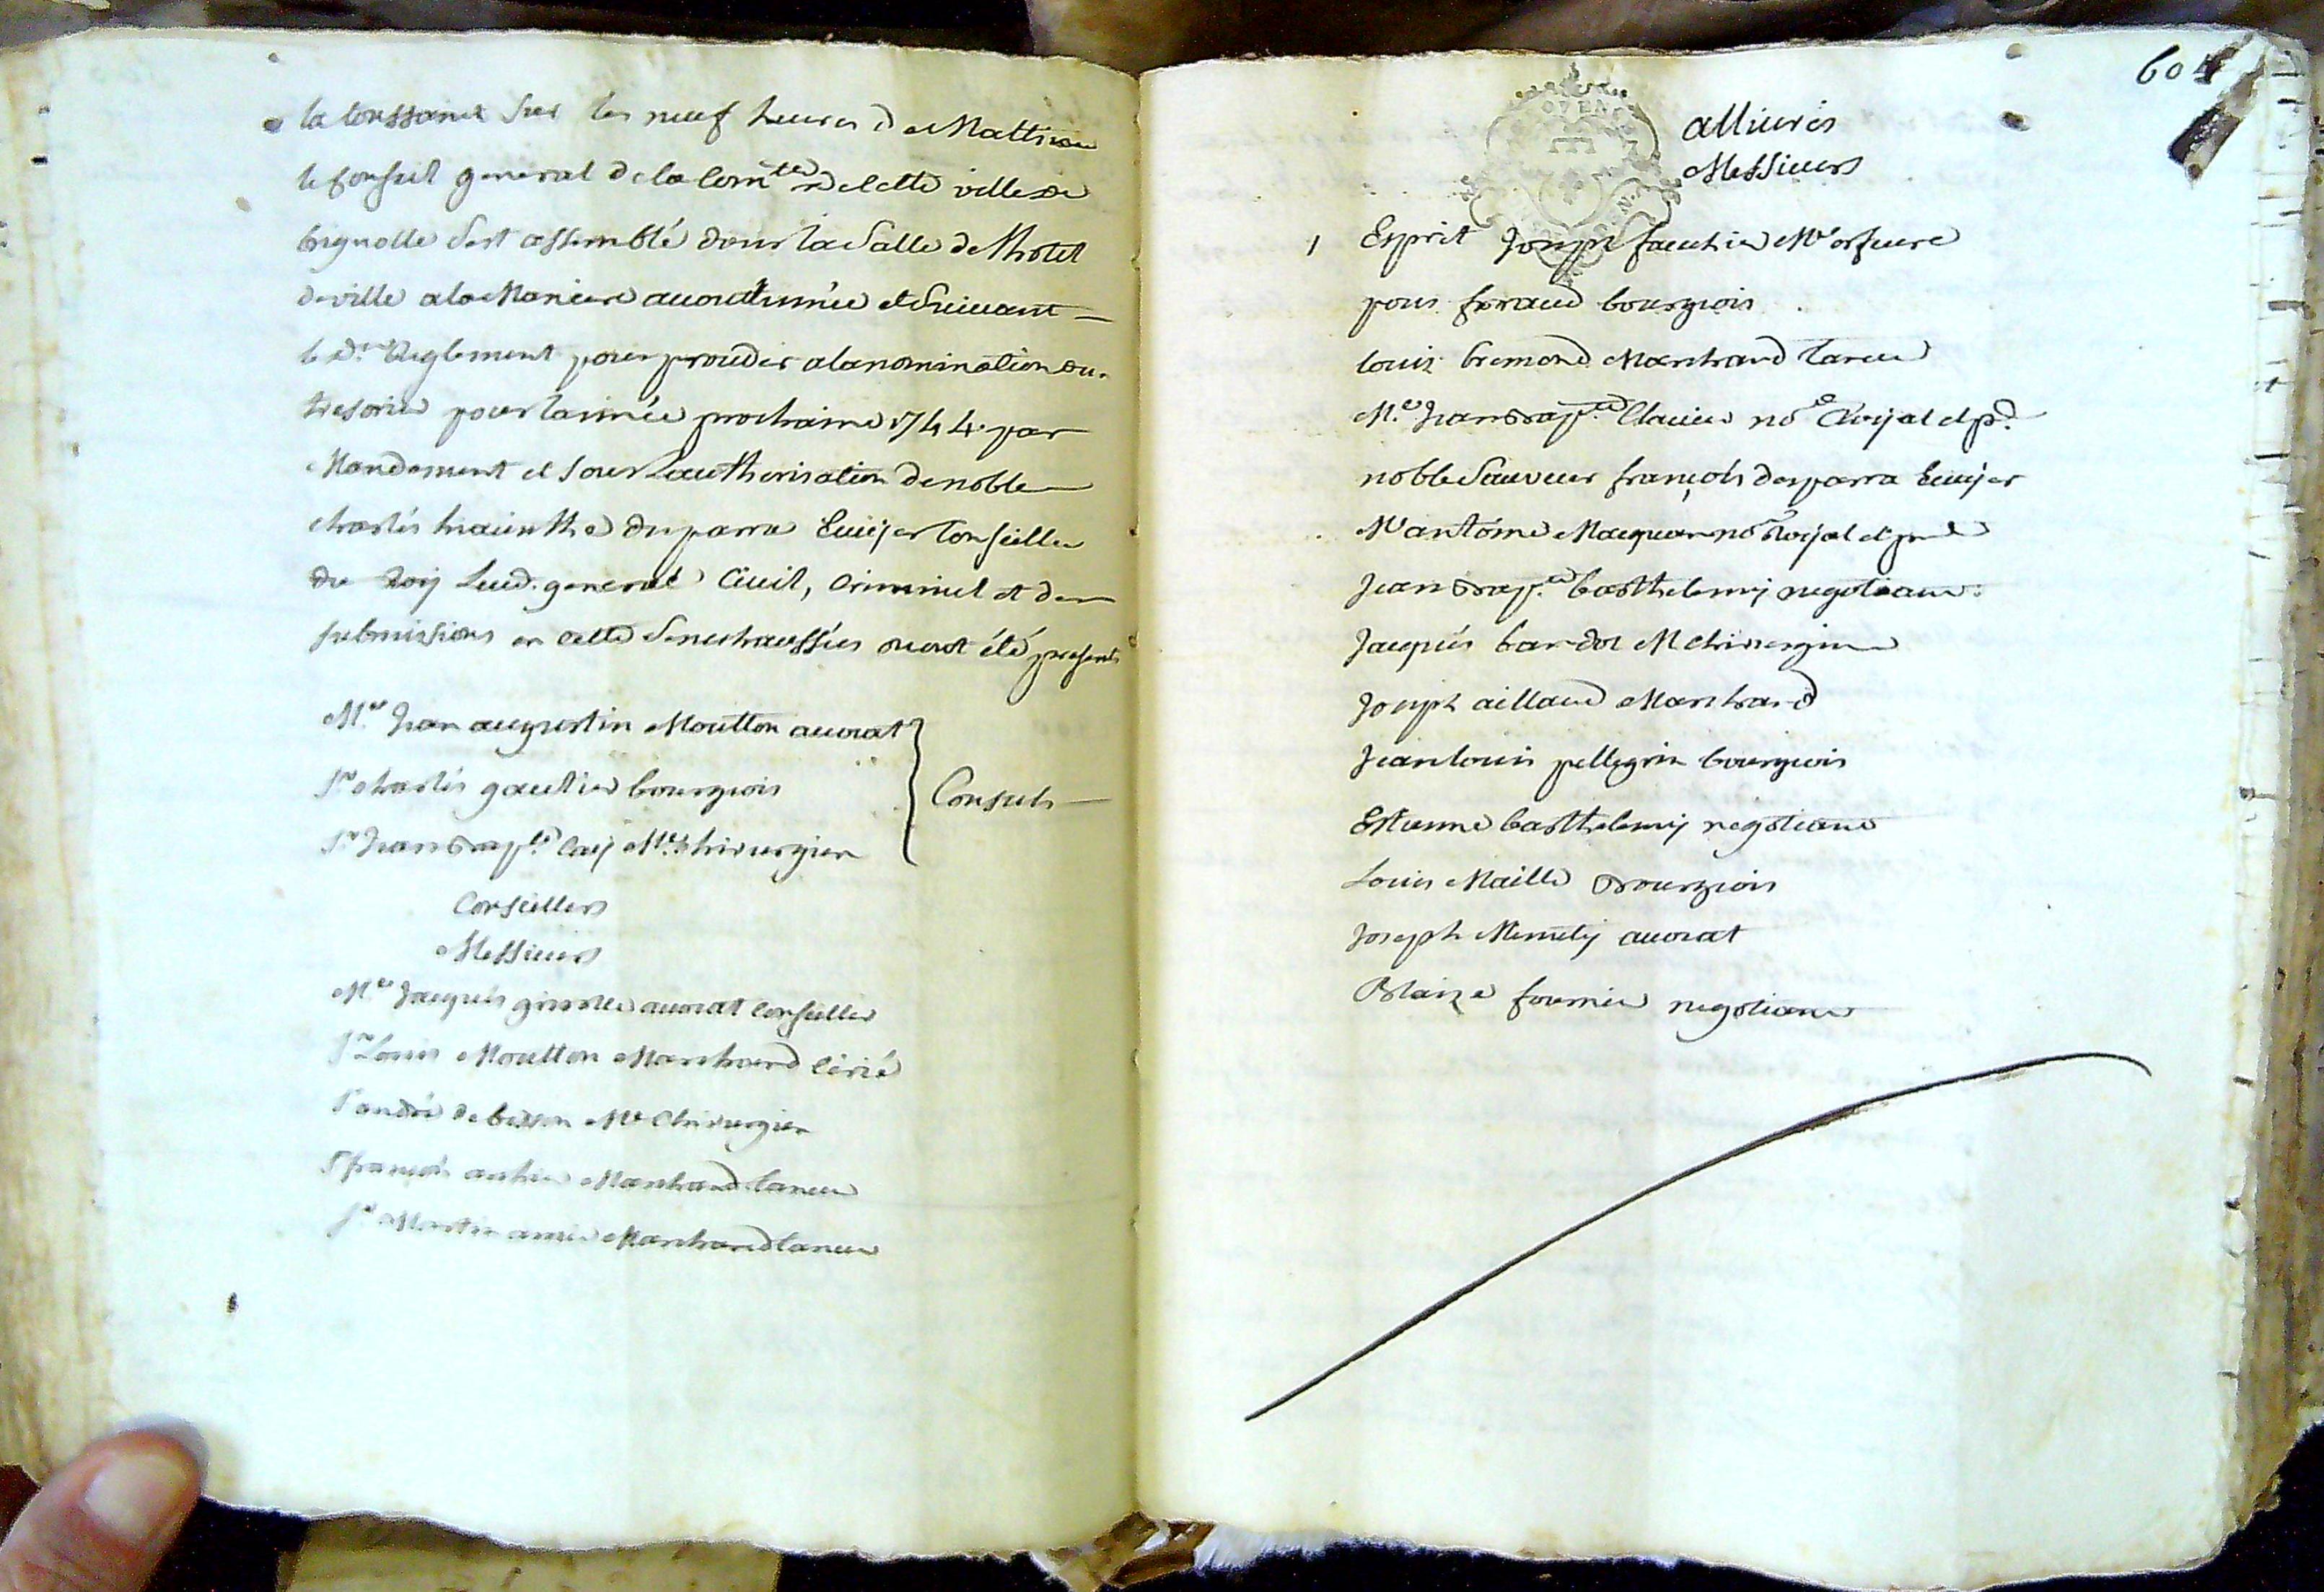 la toussanct sur les neuf heures de Mattin
le Conseil general de la Com.te de cette ville de
brignolle s'est assemblé dans la salle de l'hotel
de ville a la Maniere accoutumée et suivant
le d.t Reglement pour proceder a la nomination du
tresorier pour l'année prochaine 1744. par
Mandement et sous l'authorisation de noble
charles hiacinthe desparra Ecuyer Conseiller
du Roy Lieut. general Civil, Criminel et des
submissions en cette Senechaussée ou ont été presents
M.e Jean augustin Moutton avocat
S.r charles gautier bourgeois
S.r Jean Bap.te Caij M.e Chirurgien
Consuls
Conseillers
Messieurs
M.e Jacques avocat Conseiller
S.r Louis Moutton Marchand Cirié
S.r andré de besson M.e Chirurgien
S.r françois Marchand taneur
S.r Martin amic Marchand taneur
604
allivrés
Messieurs
1 Esprit Joseph fauchier M.e orfevre
bourgeois
louis bremond Marchand taneur
M.e Jean Bap.te Clavier no.e Royal et p.r
noble Sauveur françois desparra Ecuyer
M.e antoine Maquan no.e Royal et
Jean Bap.te barthelemy negotiant
Jacques bardol M chirurgien
Joseph aillaud Marchand
Jean louis pellegrin bourgeois
Estienne barthelemy negotiant
Louis Maille Bourgeois
Joseph avocat
Blaize fournier negotiant